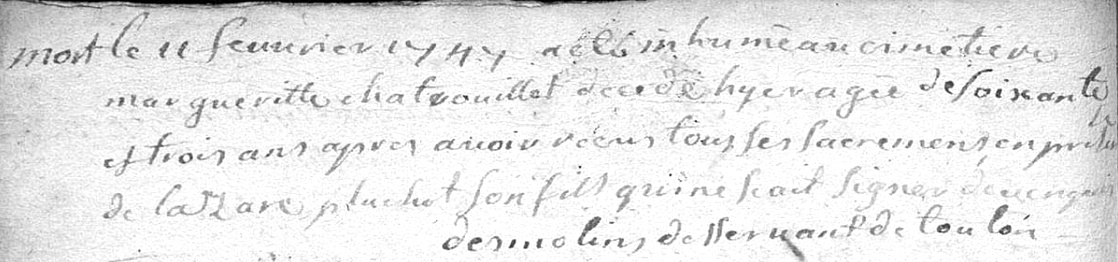 mort le 11 feuurier 1747 a eté inhumé au cimetiere
margueritte chatrouillet decedé hyer agée de soixante
et trois ans apres auoir recus tous ses sacremens en
de lazare pluchot son fils qui ne scait signer
desmolins desseruant de toulon